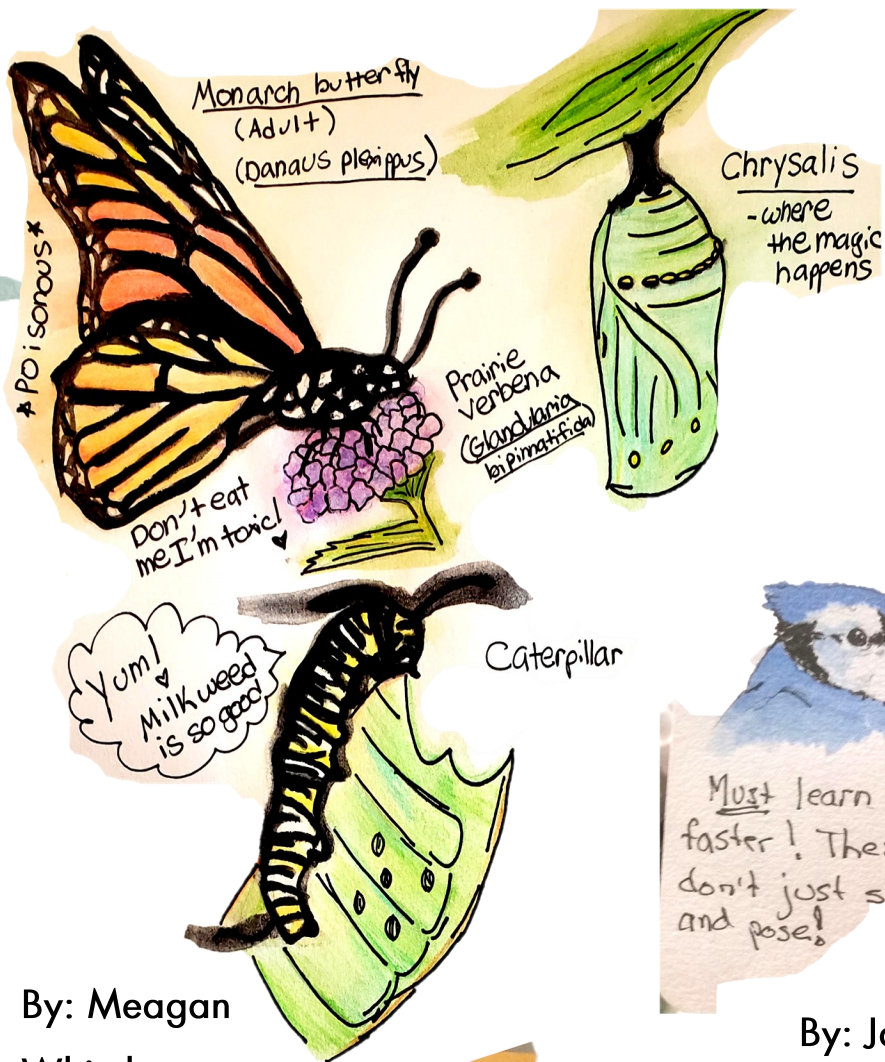 Monarch butterfly
(Adult)
(Danaus plexippus)
*Poisonous*
Chrysalis
-where
the magic
happens
Prairie
verbena
(Glandularia
bipinnatifida)
Don't eat
me I'm toxic!
Yum!
Milkweed
is so good
Caterpillar
Must learn
faster!
don't just
and pose!
By: Meagan
By: